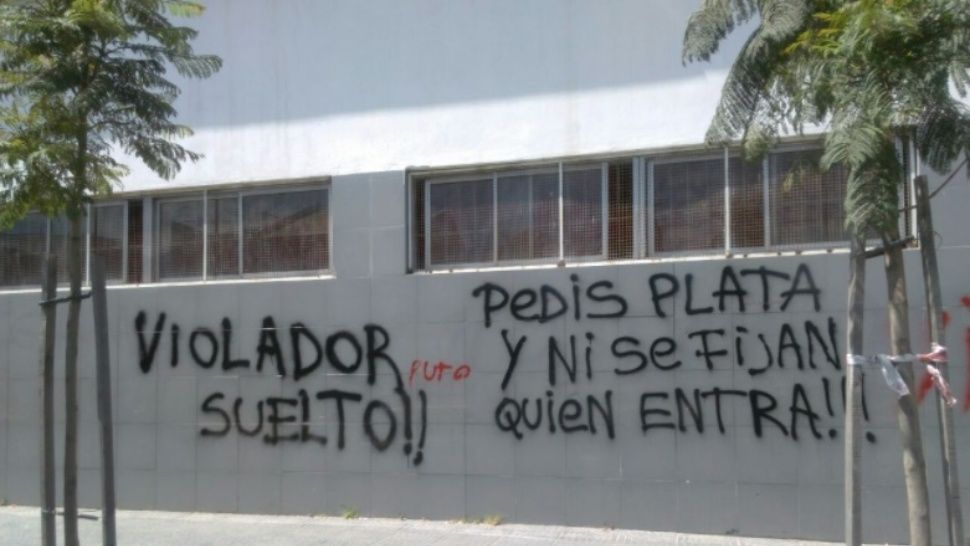 VIOLADOR
PUTO
SUELTO!!
PEDIS PLATA
Y NI SE FIJAN
QUIEN ENTRA!!!